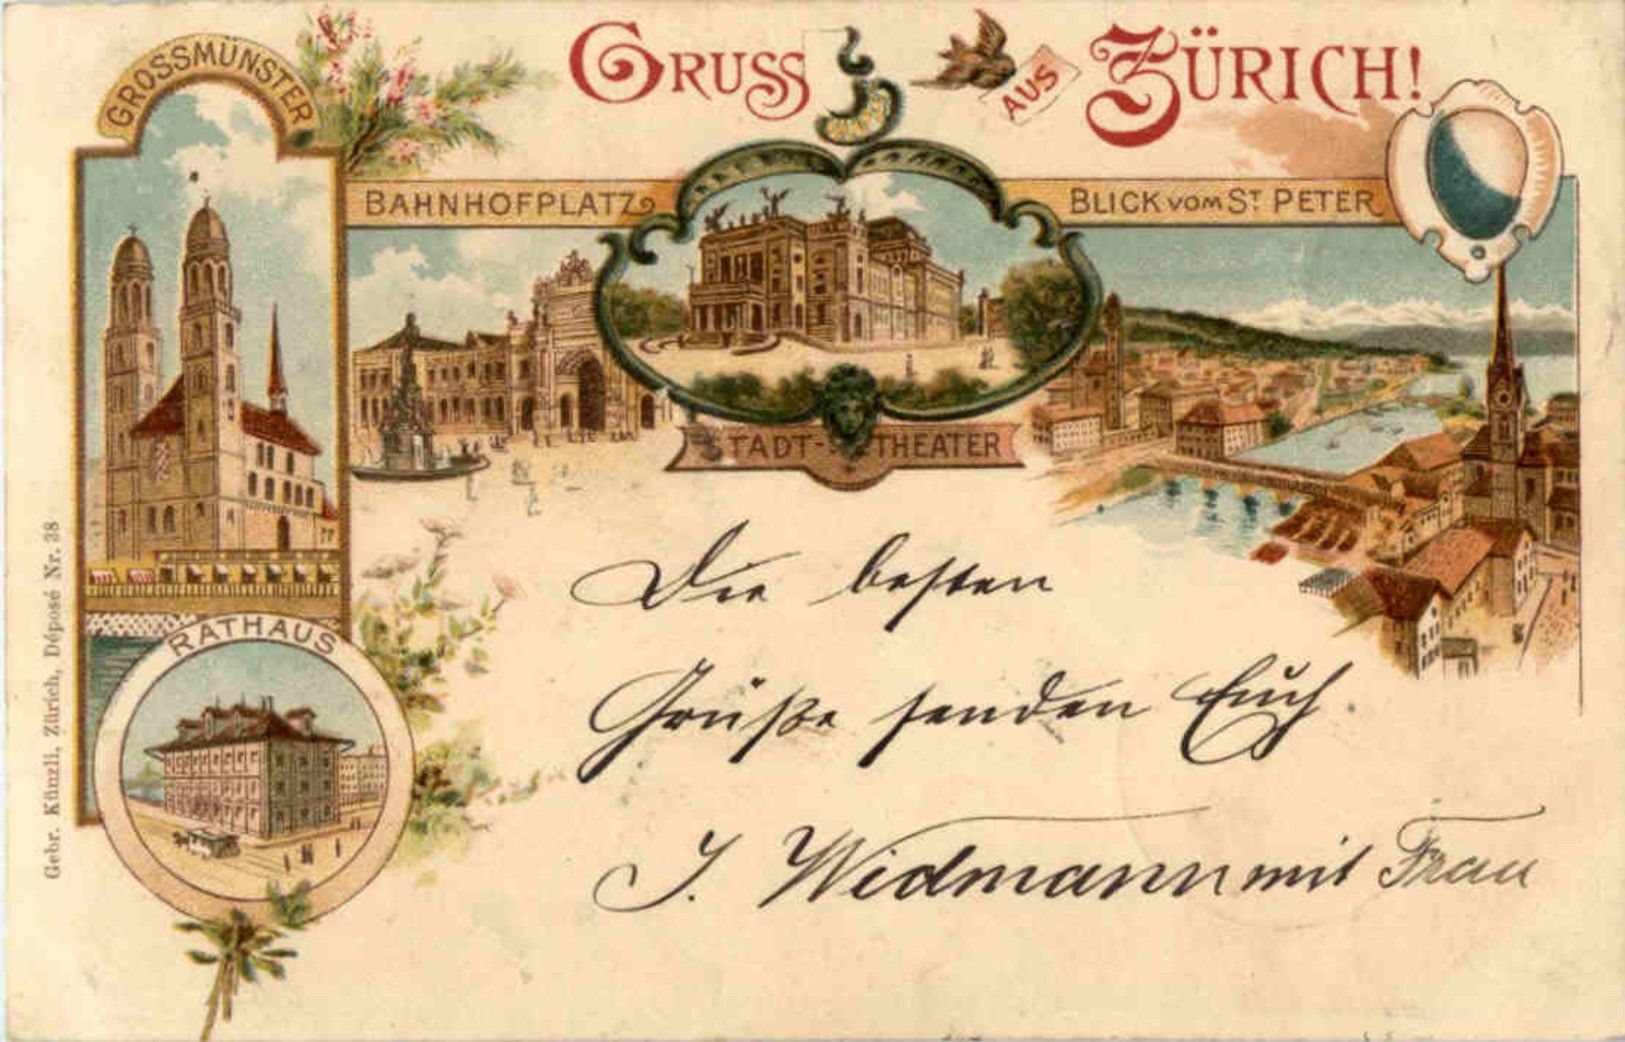 GRUSS AUS ZÜRICH!
GROSSMÜNSTER
BAHNHOFPLATZ
BLICK VOM ST PETER
STADT-THEATER
RATHAUS
Die besten
Grüße senden Euch
J. Widmann mit Frau
Gebr. Künzli, Zürich, Déposé Nr. 38